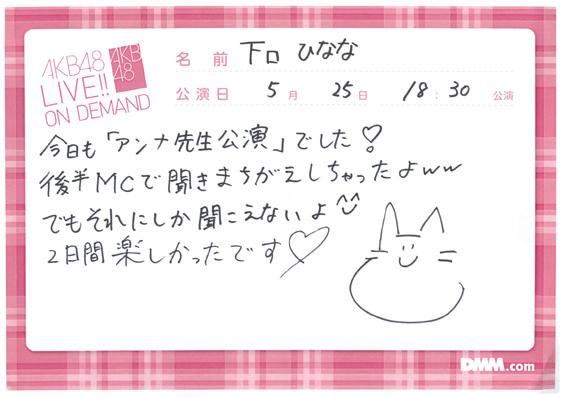 AKB48
LIVE!!
ON DEMAND
AKB
48
名前 下口 ひなな
公演日 5月 25日 18:30 公演
今日も「アンナ先生公演」でした♡
後半MCで聞きまちがえしちゃったよww
でもそれにしか聞こえないよ^^
2日間楽しかったです♡
DMM.com